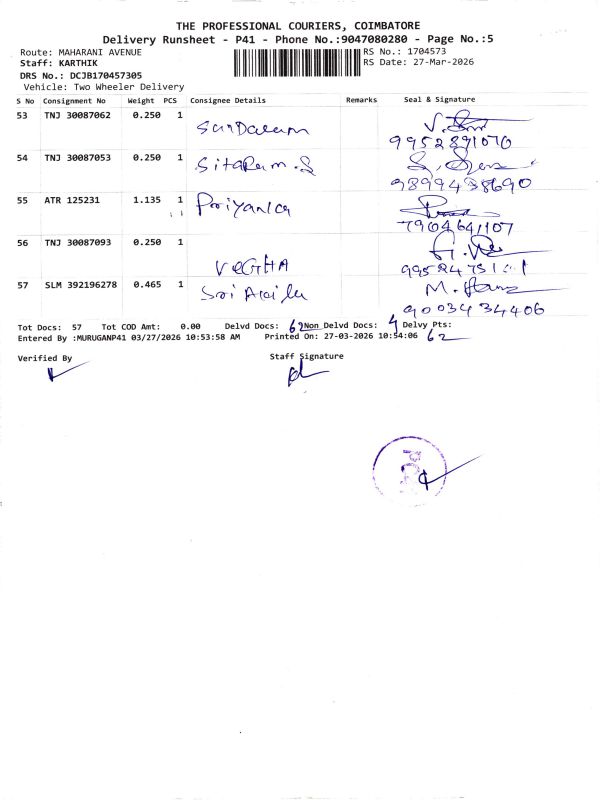 THE PROFESSIONAL COURIERS, COIMBATORE
Delivery Runsheet - P41 - Phone No.:9047080280 - Page No.:5
Route: MAHARANI AVENUE RS No.: 1704573
Staff: KARTHIK RS Date: 27-Mar-2026
DRS No.: DCJB170457305
Vehicle: Two Wheeler Delivery
S No Consignment No Weight PCS Consignee Details Remarks Seal & Signature
53 TNJ 30087062 0.250 1 Sundaram
9952891070
54 TNJ 30087053 0.250 1 Sitaram.S
9899438690
55 ATR 125231 1.135 1 Priyanka
7904641107
56 TNJ 30087093 0.250 1
VEGHA
57 SLM 392196278 0.465 1 Sri
9003434406
Tot Docs: 57 Tot COD Amt: 0.00 Delvd Docs: 62 Non Delvd Docs: Delvy Pts:
Entered By :MURUGANP41 03/27/2026 10:53:58 AM Printed On: 27-03-2026 10:54:06 62
Verified By Staff Signature